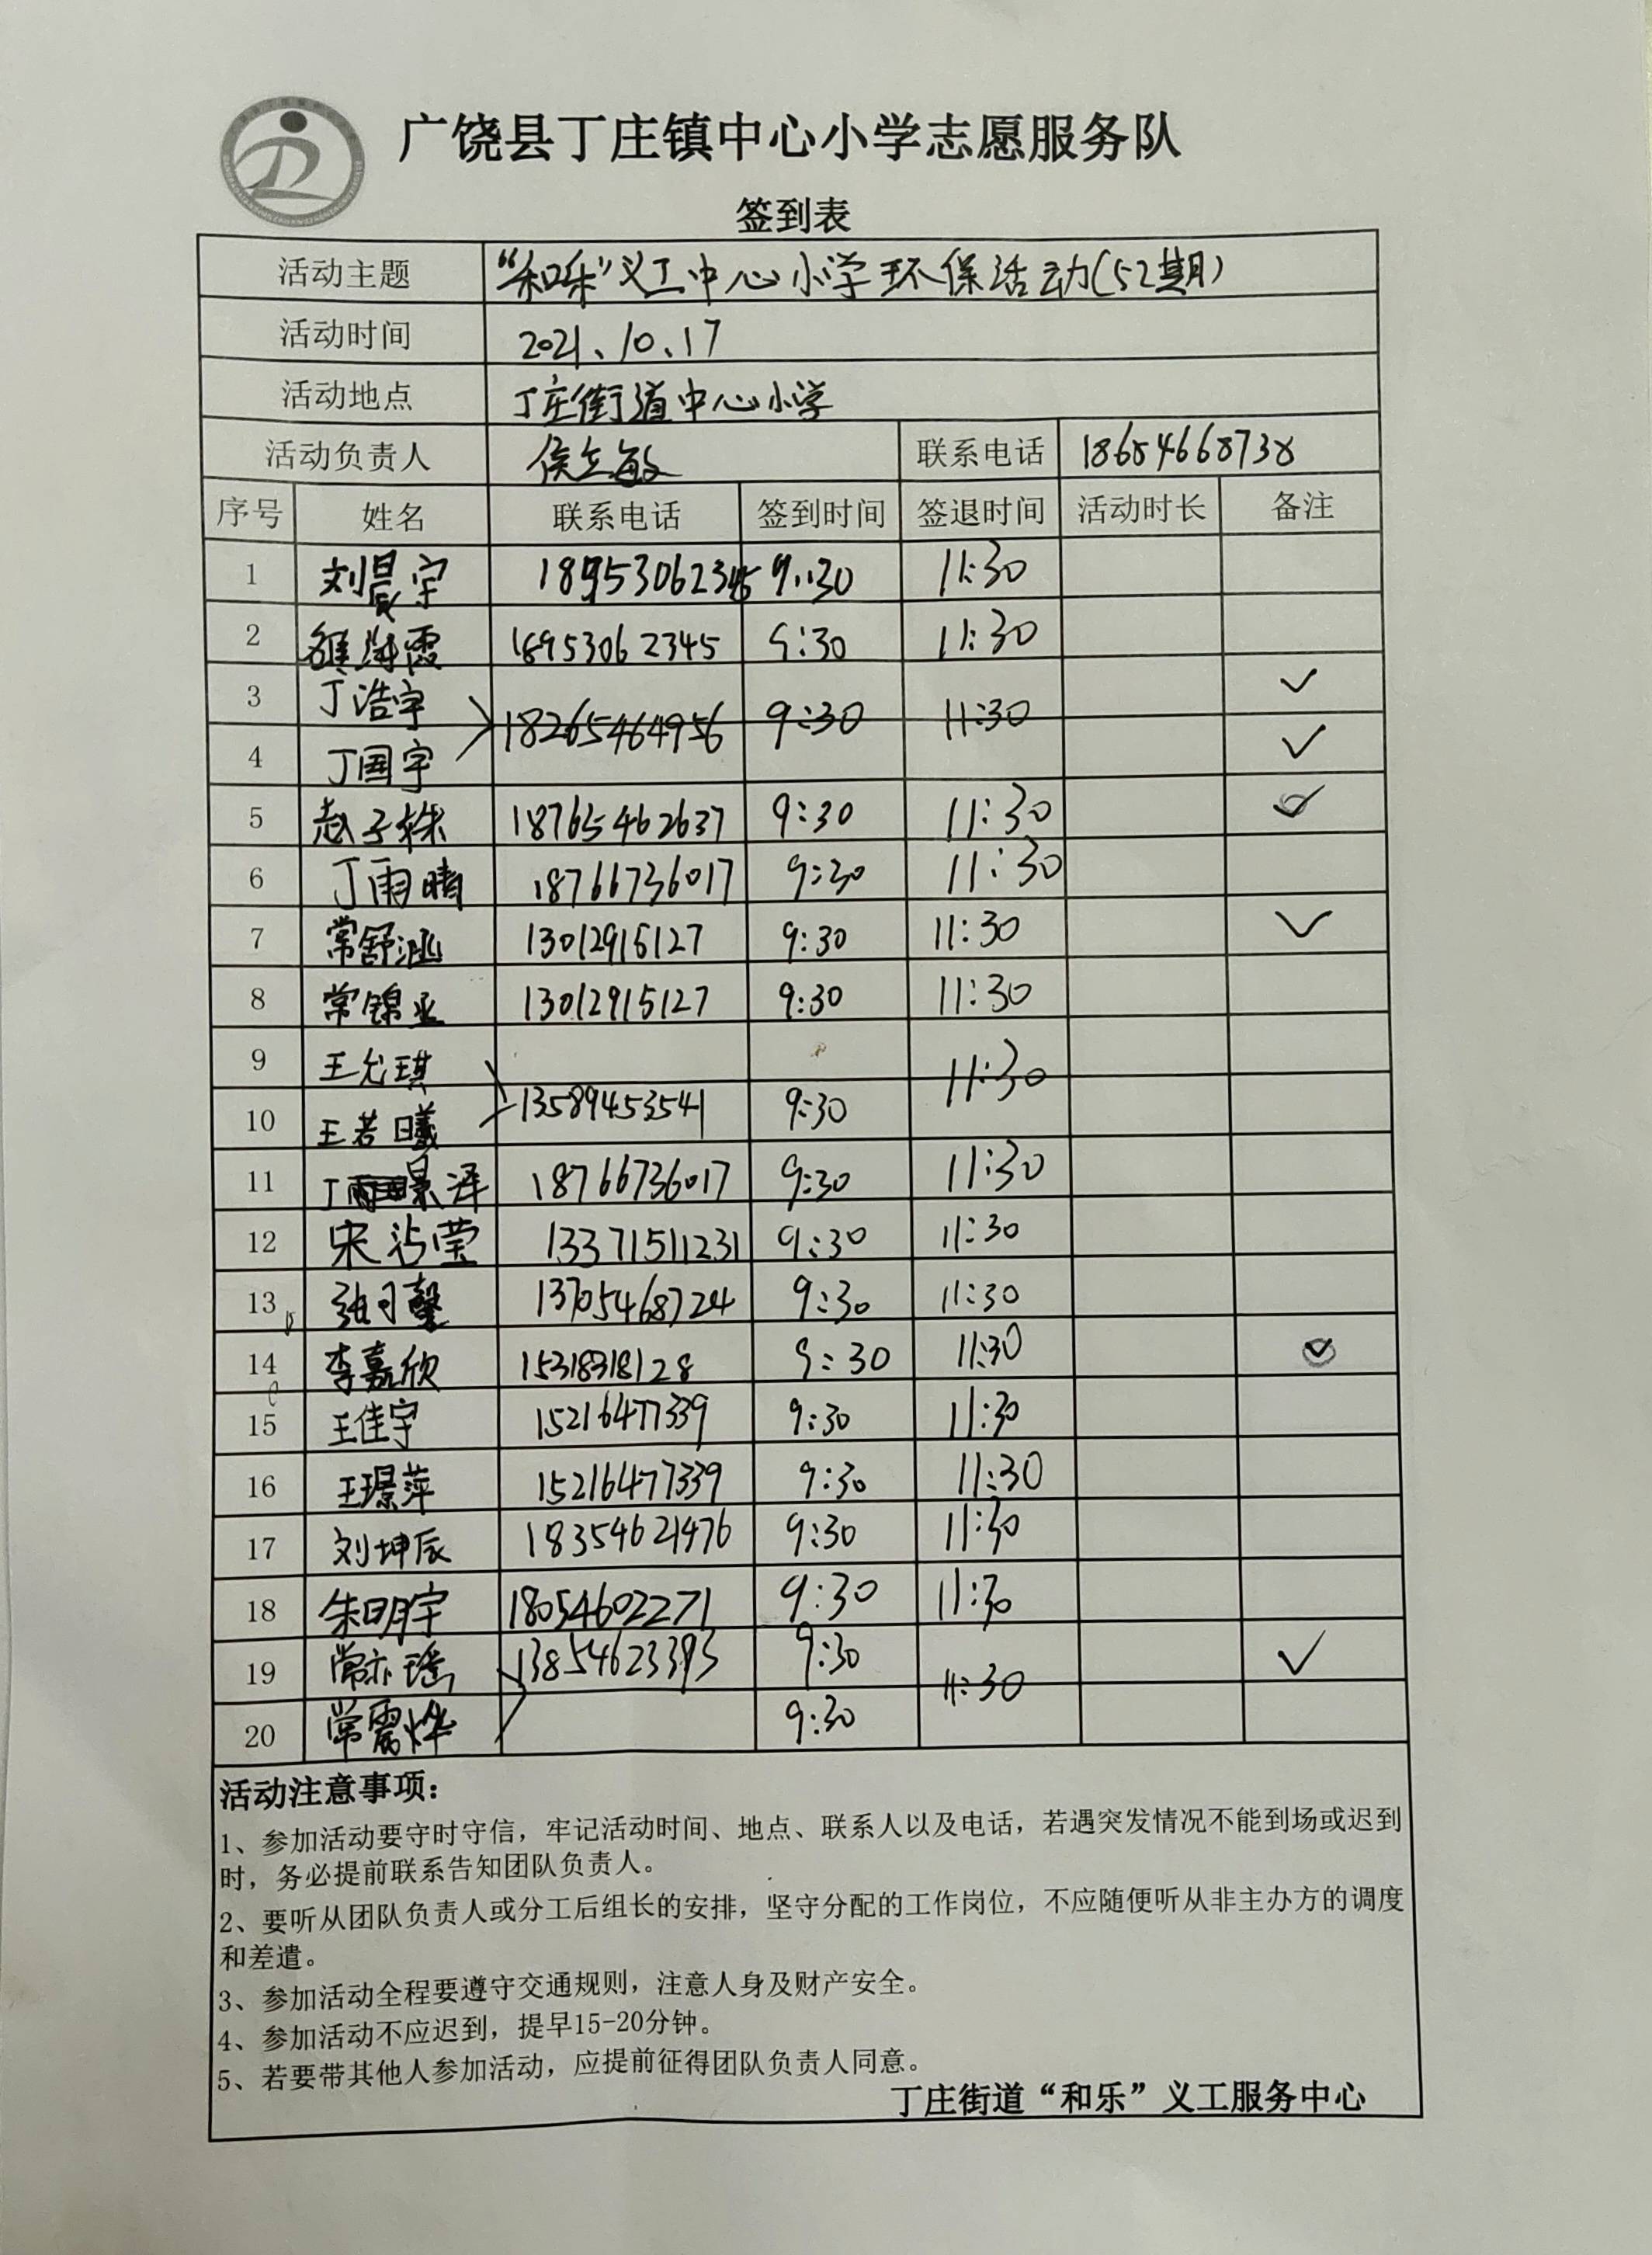 广饶县丁庄镇中心小学志愿服务队
签到表
活动主题 “和乐”义工中心小学环保活动(52期)
活动时间 2021、10、17
活动地点 丁庄街道中心小学
活动负责人 侯立敏 联系电话 18654668738
序号 姓名 联系电话 签到时间 签退时间 活动时长 备注
1 刘晨宇 18953062345 9:30 11:30
2 18953062345 9:30 11:30
3 丁浩宇 ✓
18265464956 9:30 11:30
4 丁国宇 ✓
5 赵子姝 18765462637 9:30 11:30 ✓
6 丁雨晴 18766736017 9:30 11:30
7 常舒涵 13012915127 9:30 11:30 ✓
8 常锦业 13012915127 9:30 11:30
9 王允琪 11:30
10 王若曦 13589453541 9:30
11 丁景泽 18766736017 9:30 11:30
12 宋沾莹 13371511231 9:30 11:30
13 张可馨 13705468724 9:30 11:30
14 李嘉欣 15318318128 9:30 11:30 ✓
15 王佳宇 15216477339 9:30 11:30
16 王璟萍 15216477339 9:30 11:30
17 刘坤辰 18354621476 9:30 11:30
18 朱明宇 18054602271 9:30 11:30
19 常亦瑶 13854623393 9:30 11:30 ✓
20 常震烨 9:30
活动注意事项：
1、参加活动要守时守信，牢记活动时间、地点、联系人以及电话，若遇突发情况不能到场或迟到
时，务必提前联系告知团队负责人。
2、要听从团队负责人或分工后组长的安排，坚守分配的工作岗位，不应随便听从非主办方的调度
和差遣。
3、参加活动全程要遵守交通规则，注意人身及财产安全。
4、参加活动不应迟到，提早15-20分钟。
5、若要带其他人参加活动，应提前征得团队负责人同意。
丁庄街道“和乐”义工服务中心